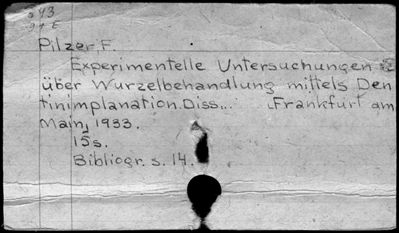 Pilzer, F.
Experimentelle Untersuchungen
über Wurzelbehandlung mittels Den
tinimplanation. Diss... Frankfurt am
Main, 1933.
15s.
Bibliogr. s. 14.